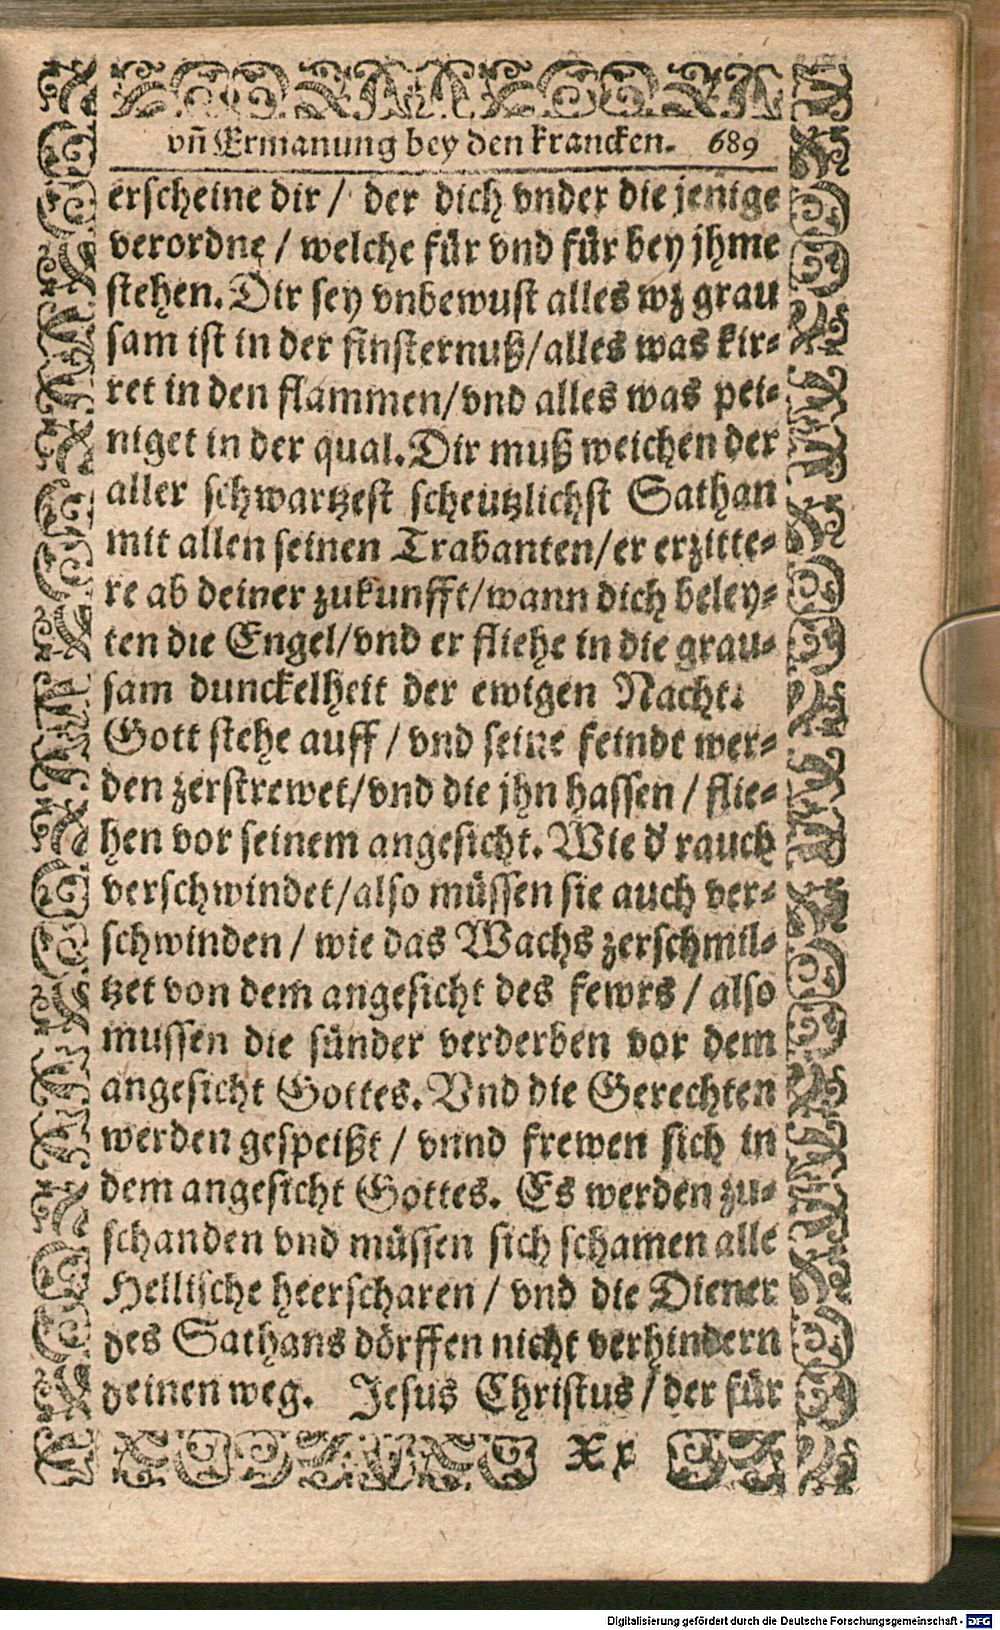 vñ Ermanung bey den krancken. 689
erscheine dir / der dich vnder die jenige
verordne / welche für vnd für bey jhme
stehen. Dir sey vnbewust alles wz grau
sam ist in der finsternuß/alles was kir-
ret in den flammen/vnd alles was pei-
niget in der qual. Dir muß weichen der
aller schwartzest scheutzlichst Sathan
mit allen seinen Trabanten/er erzitte-
re ab deiner zukunfft/wann dich beley-
ten die Engel/vnd er fliehe in die grau-
sam dunckelheit der ewigen Nacht.
Gott stehe auff / vnd seine feinde wer-
den zerstrewet/vnd die jhn hassen / flie-
hen vor seinem angesicht. Wie d' rauch
verschwindet/also müssen sie auch ver-
schwinden / wie das Wachs zerschmil-
tzet von dem angesicht des fewrs / also
mussen die sünder verderben vor dem
angesicht Gottes. Vnd die Gerechten
werden gespeißt / vnnd frewen sich in
dem angesicht Gottes. Es werden zu-
schanden vnd müssen sich schamen alle
Hellische heerscharen / vnd die Diener
des Sathans dörffen nicht verhindern
deinen weg. Jesus Christus / der für
Xx
Digitalisierung gefördert durch die Deutsche Forschungsgemeinschaft - DFG